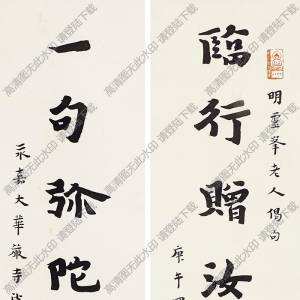 臨行贈汝
明靈峯老人偈句
庚午
一句弥陀
永嘉大華嚴寺
高清图无此水印 请登陆下载